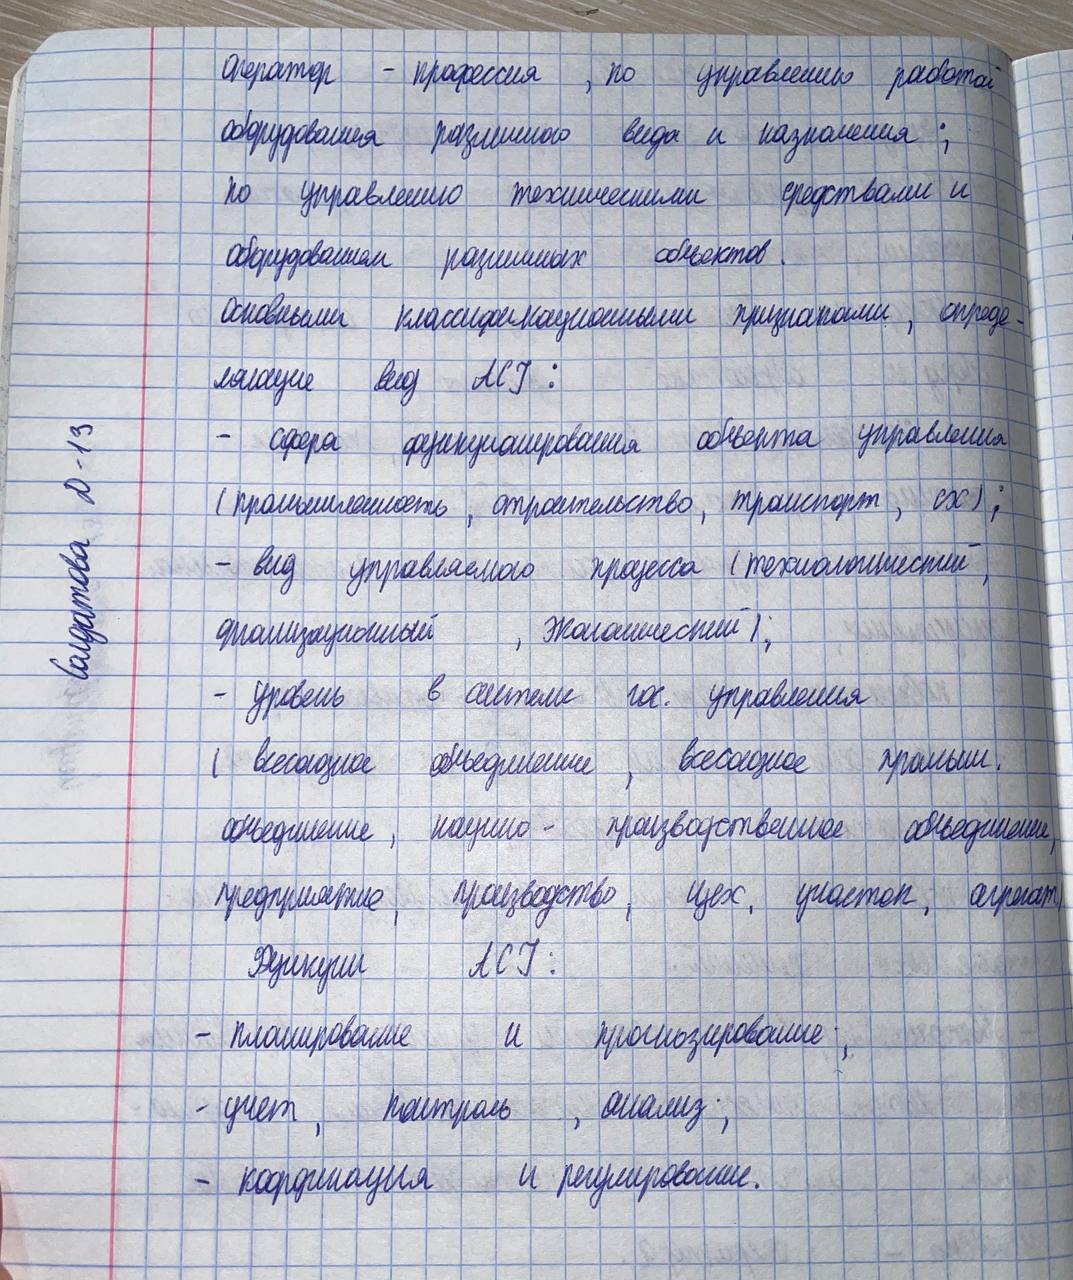 Оператор - профессия, по управлению работой
оборудования различного вида и назначения;
по управлению техническими средствами и
оборудованием различных объектов.
Основными классификационными признаками, опреде-
ляющие вид АСУ:
- сфера функционирования объекта управления
(промышленность, строительство, транспорт, сх);
- вид управляемого процесса (технологический,
, экономический);
- уровень в системе гос. управления
(всесоюзное объединение, всесоюзное промыш.
объединение, научно-производственное объединение,
предприятие, производство, цех, участок, агрегат)
Функции АСУ:
- планирование и прогнозирование;
- учет, контроль, анализ;
- координация и регулирование.
Солдатова Д-13